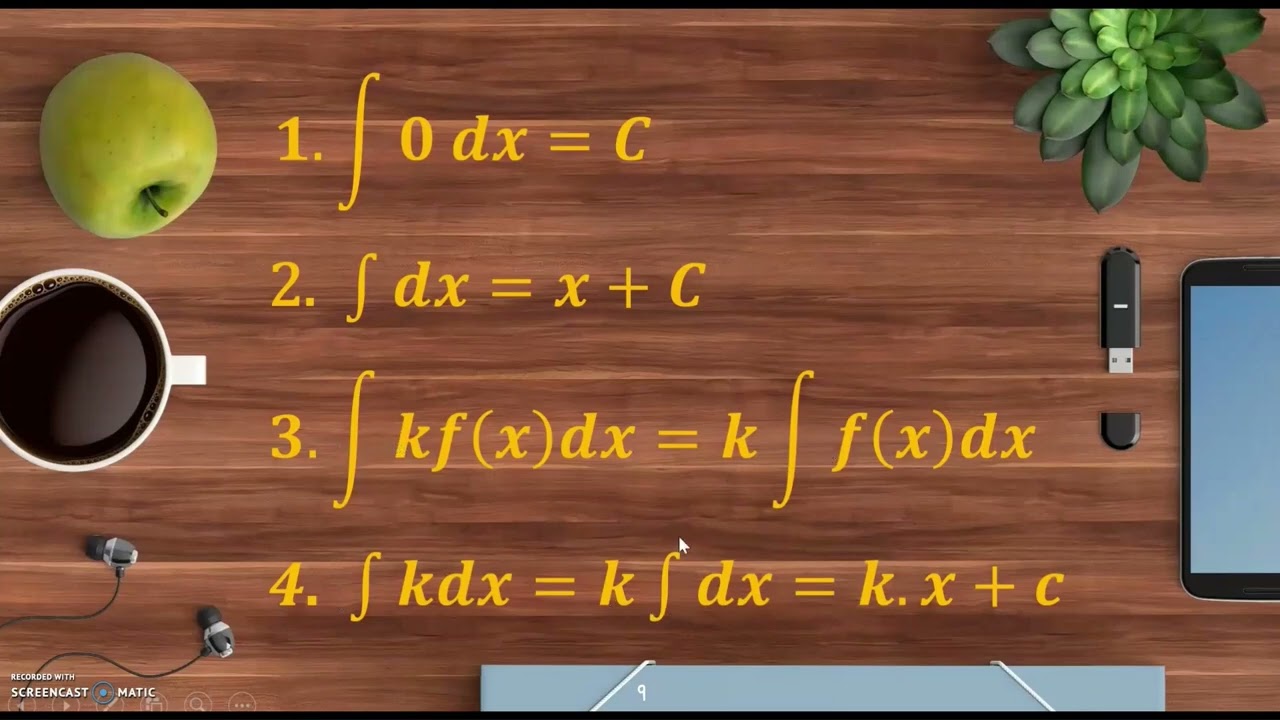 1. ∫ 0 dx = C
2. ∫ dx = x + C
3. ∫ kf(x)dx = k ∫ f(x)dx
4. ∫ kdx = k ∫ dx = k. x + c
RECORDED WITH
SCREENCAST MATIC
9